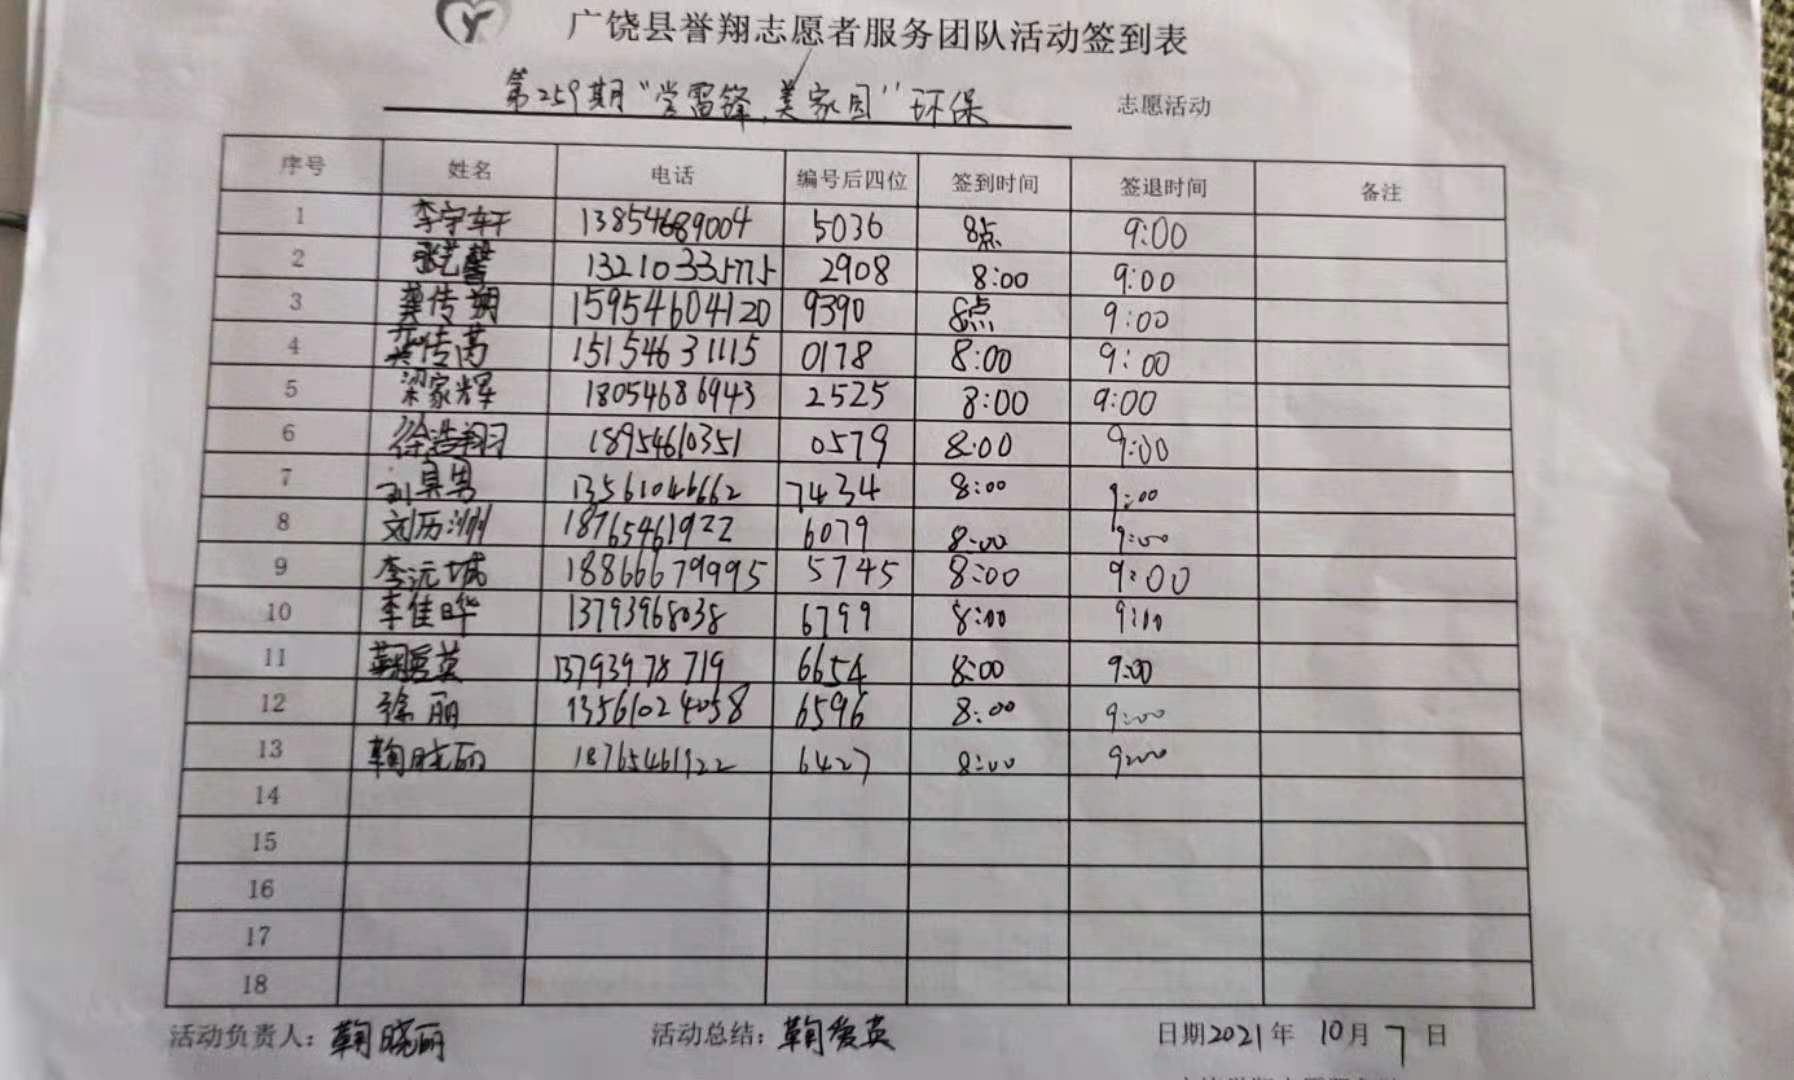 广饶县誉翔志愿者服务团队活动签到表
第259期“学雷锋、美家园”环保 志愿活动
序号 姓名 电话 编号后四位 签到时间 签退时间 备注
1 李宇轩 13854689004 5036 8点 9:00
2 张艺馨 13210335775 2908 8:00 9:00
3 龚传朔 15954604120 9390 8点 9:00
4 传 15154631115 0178 8:00 9:00
5 梁家辉 18054686943 2525 8:00 9:00
6 徐浩翔 18954610351 0579 8:00 9:00
7 刘昊男 13561046662 7434 8:00 9:00
8 刘历洲 18765461922 6079 8:00 9:00
9 李沅城 18866679995 5745 8:00 9:00
10 李佳晔 13793968038 6799 8:00 9:00
11 鞠爱英 13793978719 6654 8:00 9:00
12 徐丽 13561024058 6596 8:00 9:00
13 鞠晓丽 18765461922 6427 8:00 9:00
14
15
16
17
18
活动负责人：鞠晓丽 活动总结：鞠爱英 日期2021年 10月 7日